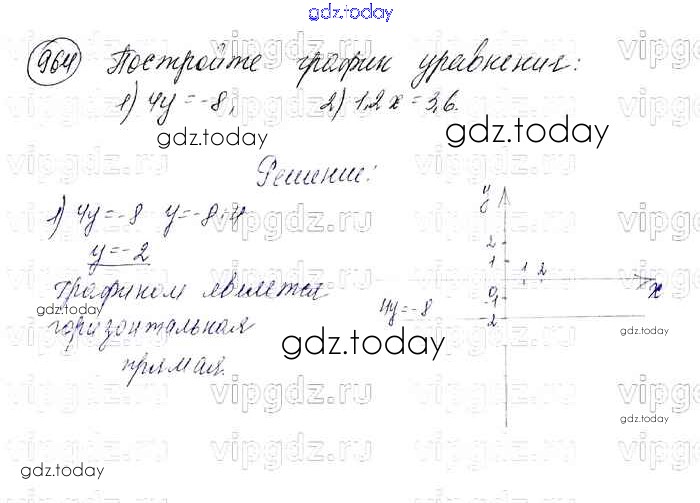 gdz.today
964 Постройте график уравнения:
1) 4y = -8, 2) 1,2x = 3,6.
gdz.today gdz.today
Решение:
1) 4y = -8 y = -8:4
y = -2
графиком является
горизонтальная
прямая.
y
2
1
1 2
0
x
-1
-2
4y = -8
gdz.today
gdz.today
gdz.today
gdz.today
gdz.today
vipgdz.ru